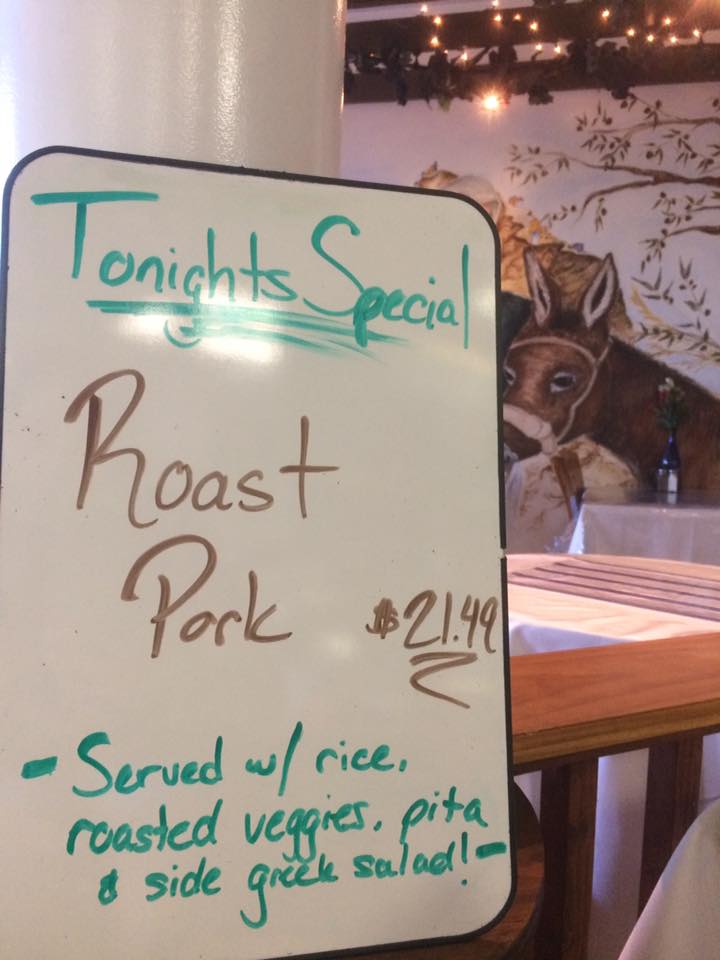 Tonights Special
Roast
Pork $21.49
- Served w/ rice,
roasted veggies, pita
& side greek salad! -